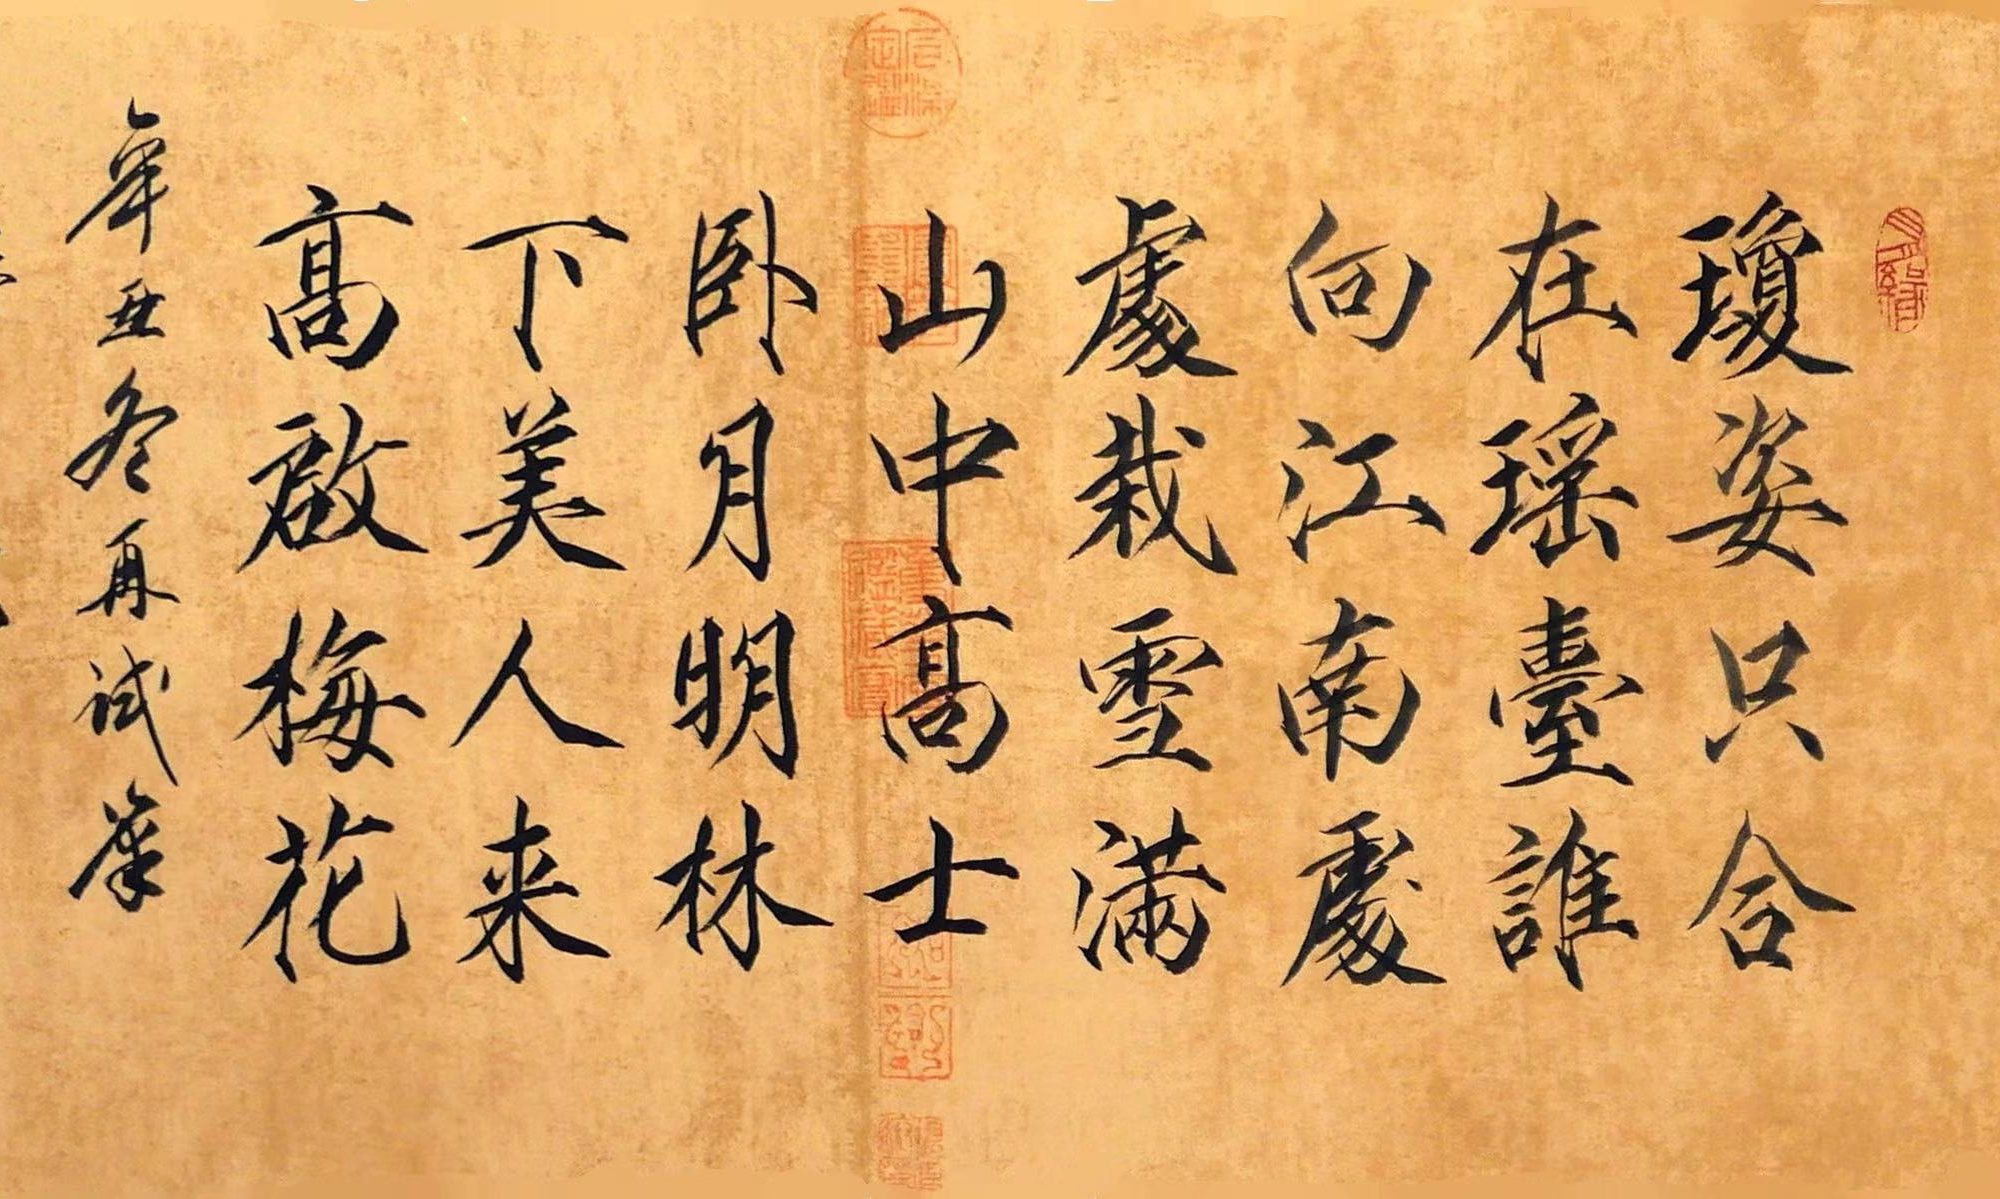 瓊姿只合
在瑶臺誰
向江南處
處栽雪滿
山中高士
卧月明林
下美人来
高啟梅花
辛丑冬再试筆